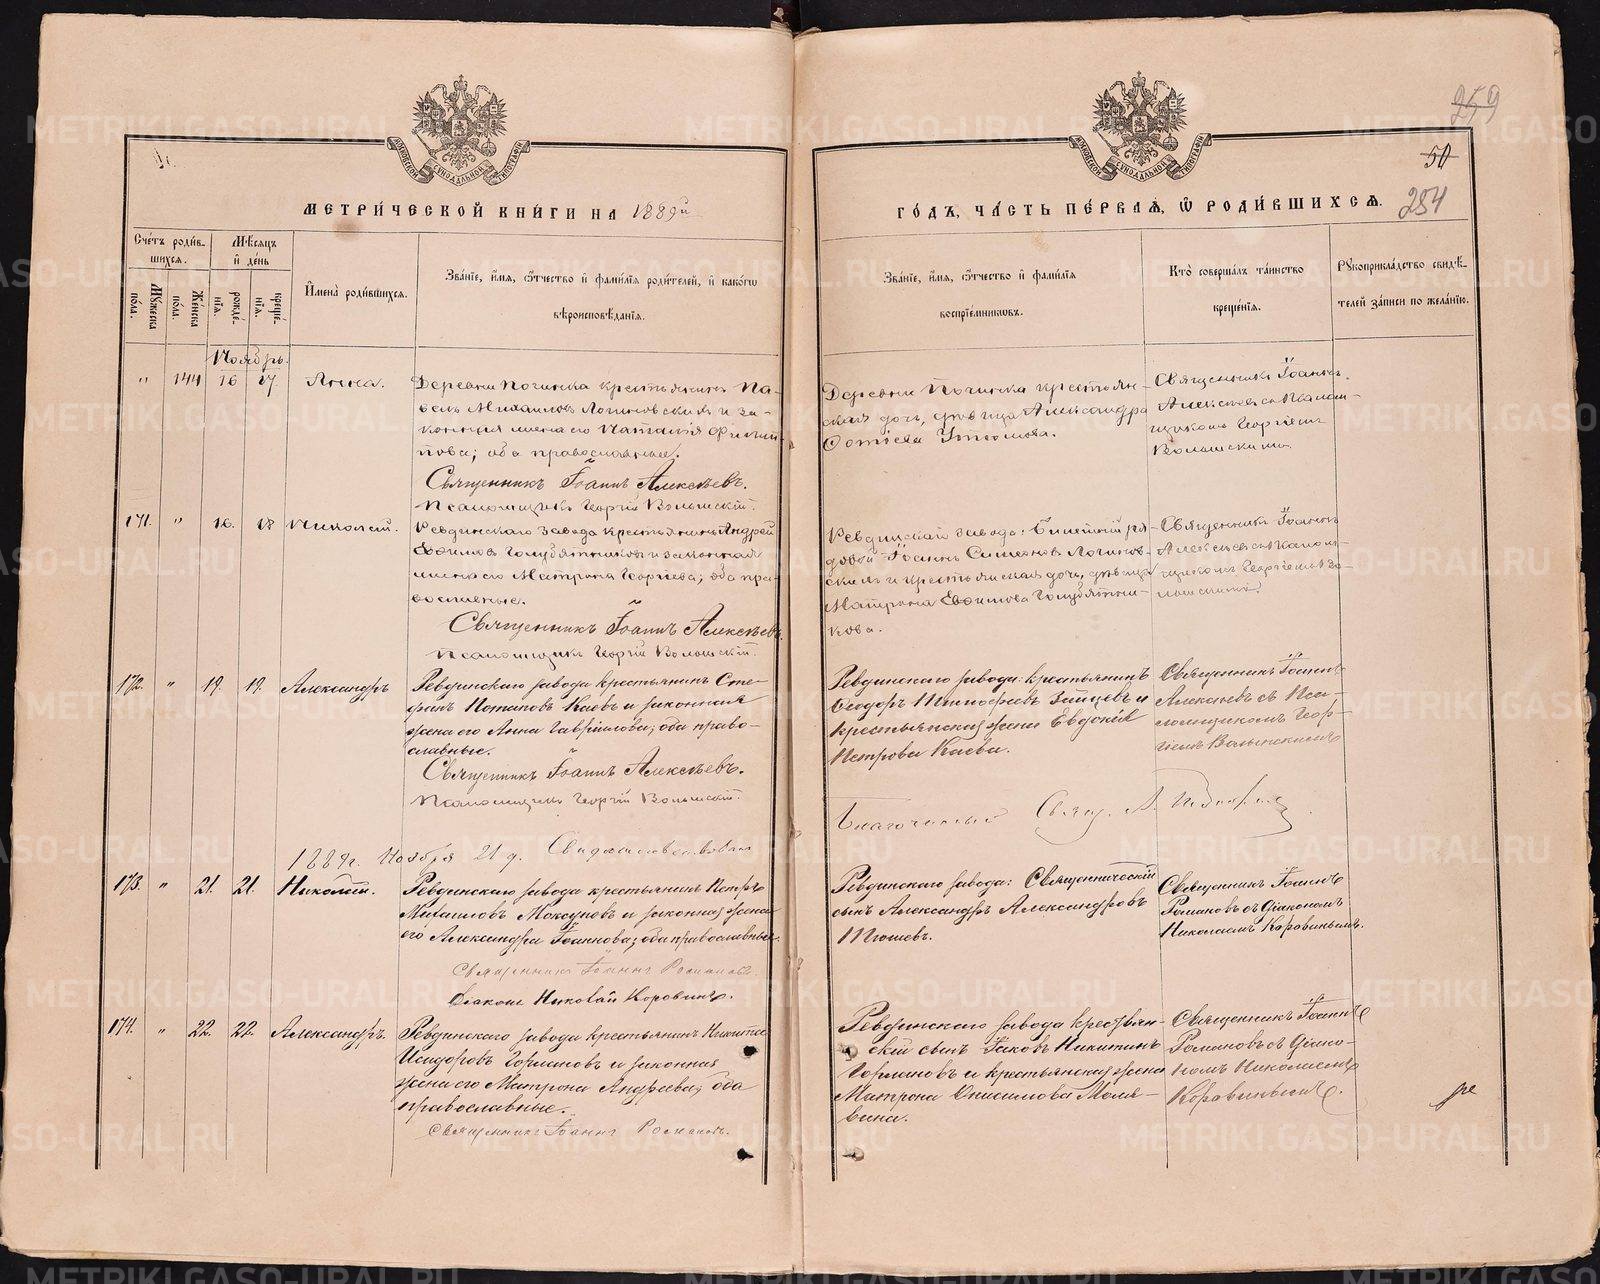 259
50
МЕТРИ́ЧЕСКОЙ КНИ́ГИ НА 1889й
ГО́ДЪ, ЧА́СТЬ ПЕ́РВАѦ, Ѽ РОДИ́ВШИХСѦ.
254
Сче́тъ роди́в-
шихсѧ.
Мѣ́сѧцъ
и҆ де́нь
Мꙋ́жеска
по́ла.
Же́нска
по́ла.
рожде́-
нїѧ.
креще́-
нїѧ.
И҆мена̀ роди́вшихсѧ.
Зва́нїе, и҆́мѧ, ѻ҆́тчество и҆ фами́лїѧ роди́телей, и҆ како́гѡ
вѣроисповѣ́данїѧ.
Зва́нїе, и҆́мѧ, ѻ҆́тчество и҆ фами́лїѧ
воспрїе́мникѡвъ.
Кто̀ соверша́лъ та́инство
креще́нїѧ.
Рꙋкоприкла́дство свидѣ́-
телей за́писи по жела́нїю.
Ноябрь.
" 144 16 17 Анна.
Деревни Починка крестьянинъ Па-
велъ Михаиловъ Логиновскихъ и за-
конная жена его Наталія Филип-
пова; оба православные.
Священникъ Іоаннъ Алексѣевъ.
Псаломщикъ Георгій Волынскій.
Деревни Починка крестьян-
ская дочь, дѣвица Александра
Фотіева
Священникъ Іоаннъ
Алексѣевъ съ Псалом-
щикомъ Георгіемъ
Волынскимъ.
171. " 16. 18 Николай.
Ревдинскаго завода крестьянинъ Андрей
Ефимовъ Голубятниковъ и законная
жена его Матрона Георгіева; оба пра-
вославные.
Священникъ Іоаннъ Алексѣевъ.
Псаломщикъ Георгій Волынскій.
Ревдинскаго завода: Билетный ря-
довой Іоаннъ Симеоновъ Логинов-
скихъ и крестьянская дочь, дѣвица
Матрона Ефимова Голубятни-
кова.
Священникъ Іоаннъ
Алексѣевъ съ Псалом-
щикомъ Георгіемъ Во-
лынскимъ.
172. " 19. 19. Александръ
Ревдинскаго завода крестьянинъ Сте-
фанъ Потаповъ Каевъ и законная
жена его Анна Гавріилова; оба право-
славные.
Священникъ Іоаннъ Алексѣевъ.
Псаломщикъ Георгій Волынскій.
Ревдинскаго завода: крестьянинъ
Ѳеодоръ Тимофеевъ Зайцевъ и
крестьянская жена Евдокія
Петрова Каева.
Священникъ Іоаннъ
Алексѣевъ съ Пса-
ломщикомъ Геор-
гіемъ Волынскимъ
1889г. Ноября 21 д. Свидѣтельствовалъ
Благочинный Свящ. А.
173. " 21. 21. Николай.
Ревдинскаго завода крестьянинъ Петръ
Михаиловъ Моксуновъ и законная жена
его Александра Іоаннова; оба православные.
Священникъ Іоаннъ Романовъ.
Діаконъ Николай Коровинъ.
Ревдинскаго завода: Священническій
сынъ Александръ Александровъ
Тюшевъ.
Священникъ Іоаннъ
Романовъ съ Діакономъ
Николаемъ Коровинымъ.
174. " 22. 22. Александръ.
Ревдинскаго завода крестьянинъ Никита
Исидоровъ Горлановъ и законная
жена его Матрона Андреева; оба
православные.
Священникъ Іоаннъ Романовъ.
Ревдинскаго завода крестьян-
скій сынъ Іаковъ Никитинъ
Горлановъ и крестьянская жена
Матрона Онисимова Моля-
вина.
Священникъ Іоаннъ
Романовъ съ Діако-
номъ Николаемъ
Коровинымъ.
METRIKI.GASO-URAL.RU